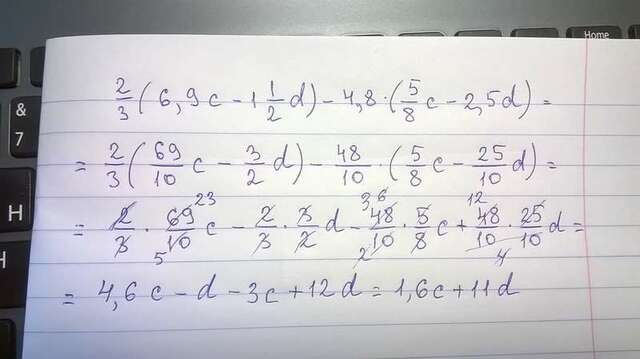 Home
&
7
H
2/3(6,9c - 1 1/2d) - 4,8·(5/8c - 2,5d) =
= 2/3(69/10c - 3/2d) - 48/10·(5/8c - 25/10d) =
= 2/3·69/10c - 2/3·3/2d - 48/10·5/8c + 48/10·25/10d =
= 4,6c - d - 3c + 12d = 1,6c + 11d